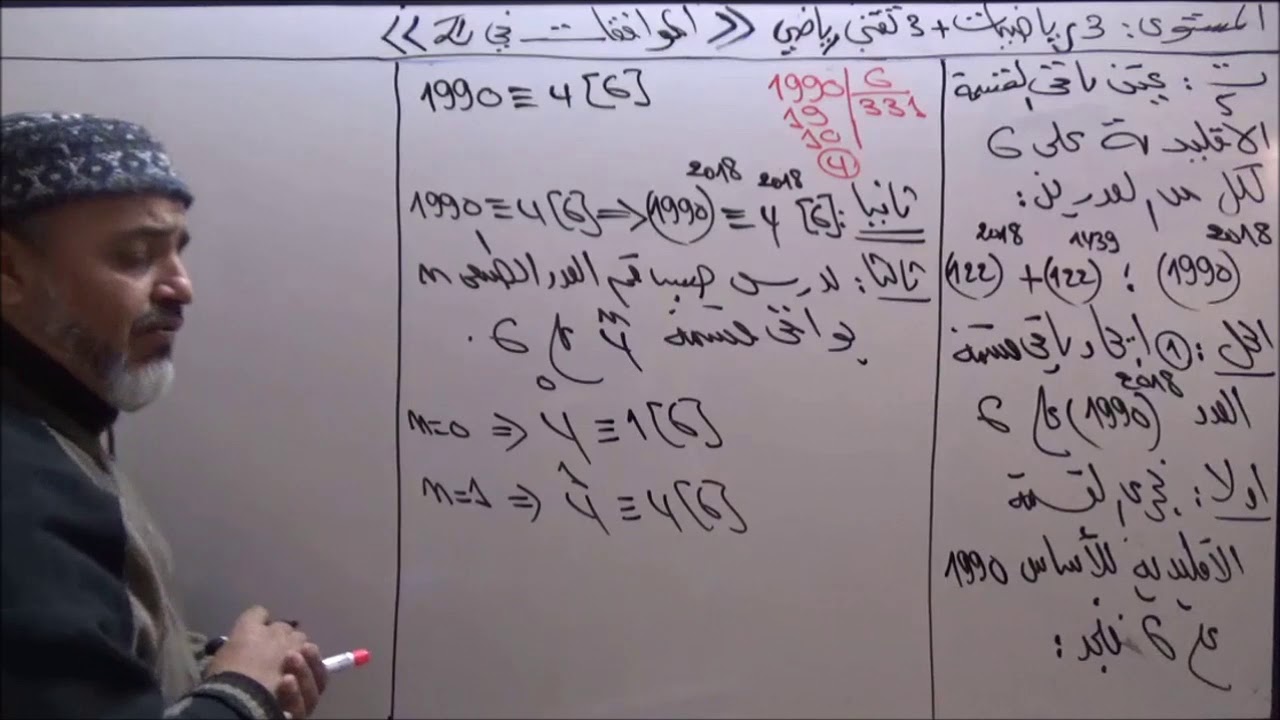 المستوى: 3 رياضيات + 3 تقني رياضي << الموافقات في Z >>
ت5: عين باقي القسمة
الاقليدية على 6
لكل من العددين:
(1990)^2018 ; (122)^1439 + (122)^2018
الحل: ① ايجاد باقي قسمة
العدد (1990)^2018 على 6
اولا: نجري القسمة
الاقليدية للأساس 1990
على 6 فنجد:
1990 ≡ 4 [6]
1990 | 6
19 | 331
10
④
ثانيا: 1990 ≡ 4 [6] ⇒ (1990)^2018 ≡ 4^2018 [6]
ثالثا: ندرس حسب قيم العدد الطبيعي n
بواقي قسمة 4^n على 6.
n=0 ⇒ 4^0 ≡ 1 [6]
n=1 ⇒ 4^1 ≡ 4 [6]